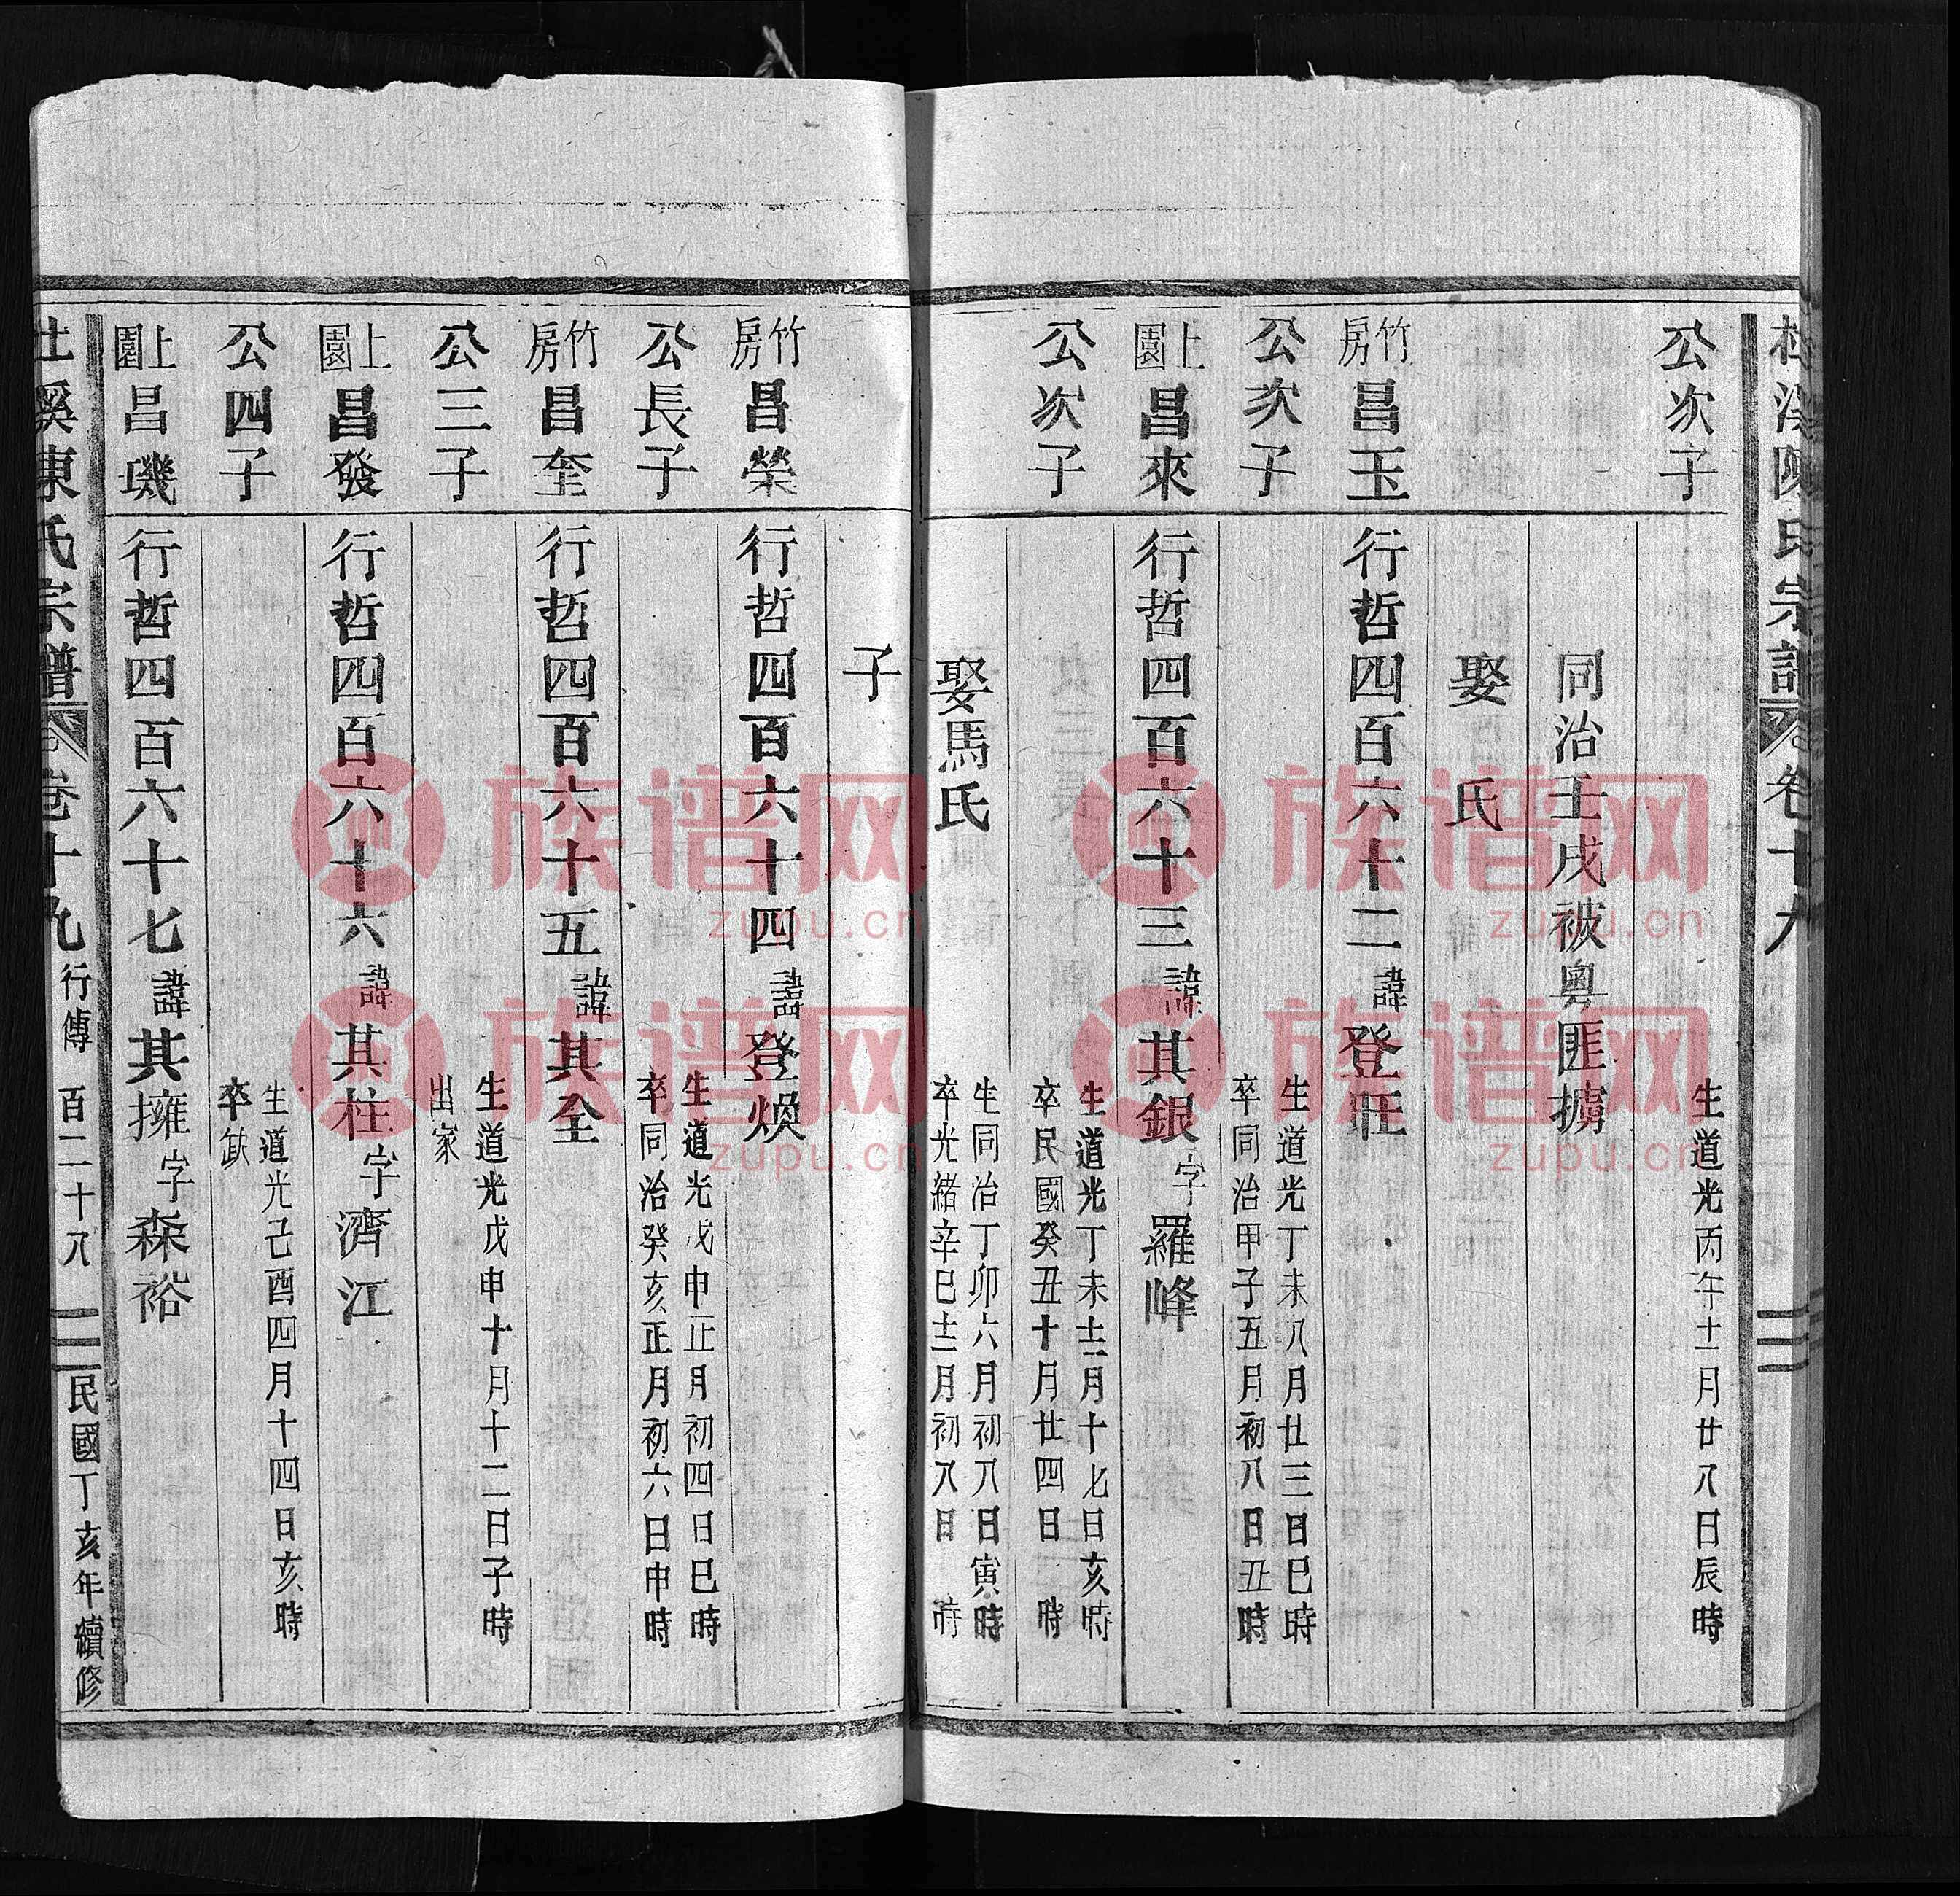 陳氏宗譜 卷十九
公次子
生道光丙午十一月廿八日辰時
同治壬戌被粵匪擄
娶 氏
竹房昌玉 行哲四百六十二諱登旺
公次子
生道光丁未八月廿三日巳時
卒同治甲子五月初八日丑時
上園昌來 行哲四百六十三諱其銀字羅峰
公次子
生道光丁未十二月十七日亥時
卒民國癸丑十月廿四日 時
娶馬氏
生同治丁卯六月初八日寅時
卒光緒辛巳十二月初八日 時
子
竹房昌榮 行哲四百六十四諱登煥
公長子
生道光戊申正月初四日巳時
卒同治癸亥正月初六日申時
竹房昌奎 行哲四百六十五諱其全
公三子
生道光戊申十月十二日子時
出家
上園昌發 行哲四百六十六諱其柱字濟江
公四子
生道光己酉四月十四日亥時
卒缺
上園昌璣 行哲四百六十七諱其擁字森裕
杜溪陳氏宗譜 卷十九 行傳 百二十八 民國丁亥年續修
族谱网
zupu.cn
族谱网
zupu.cn
族谱网
zupu.cn
族谱网
zupu.cn